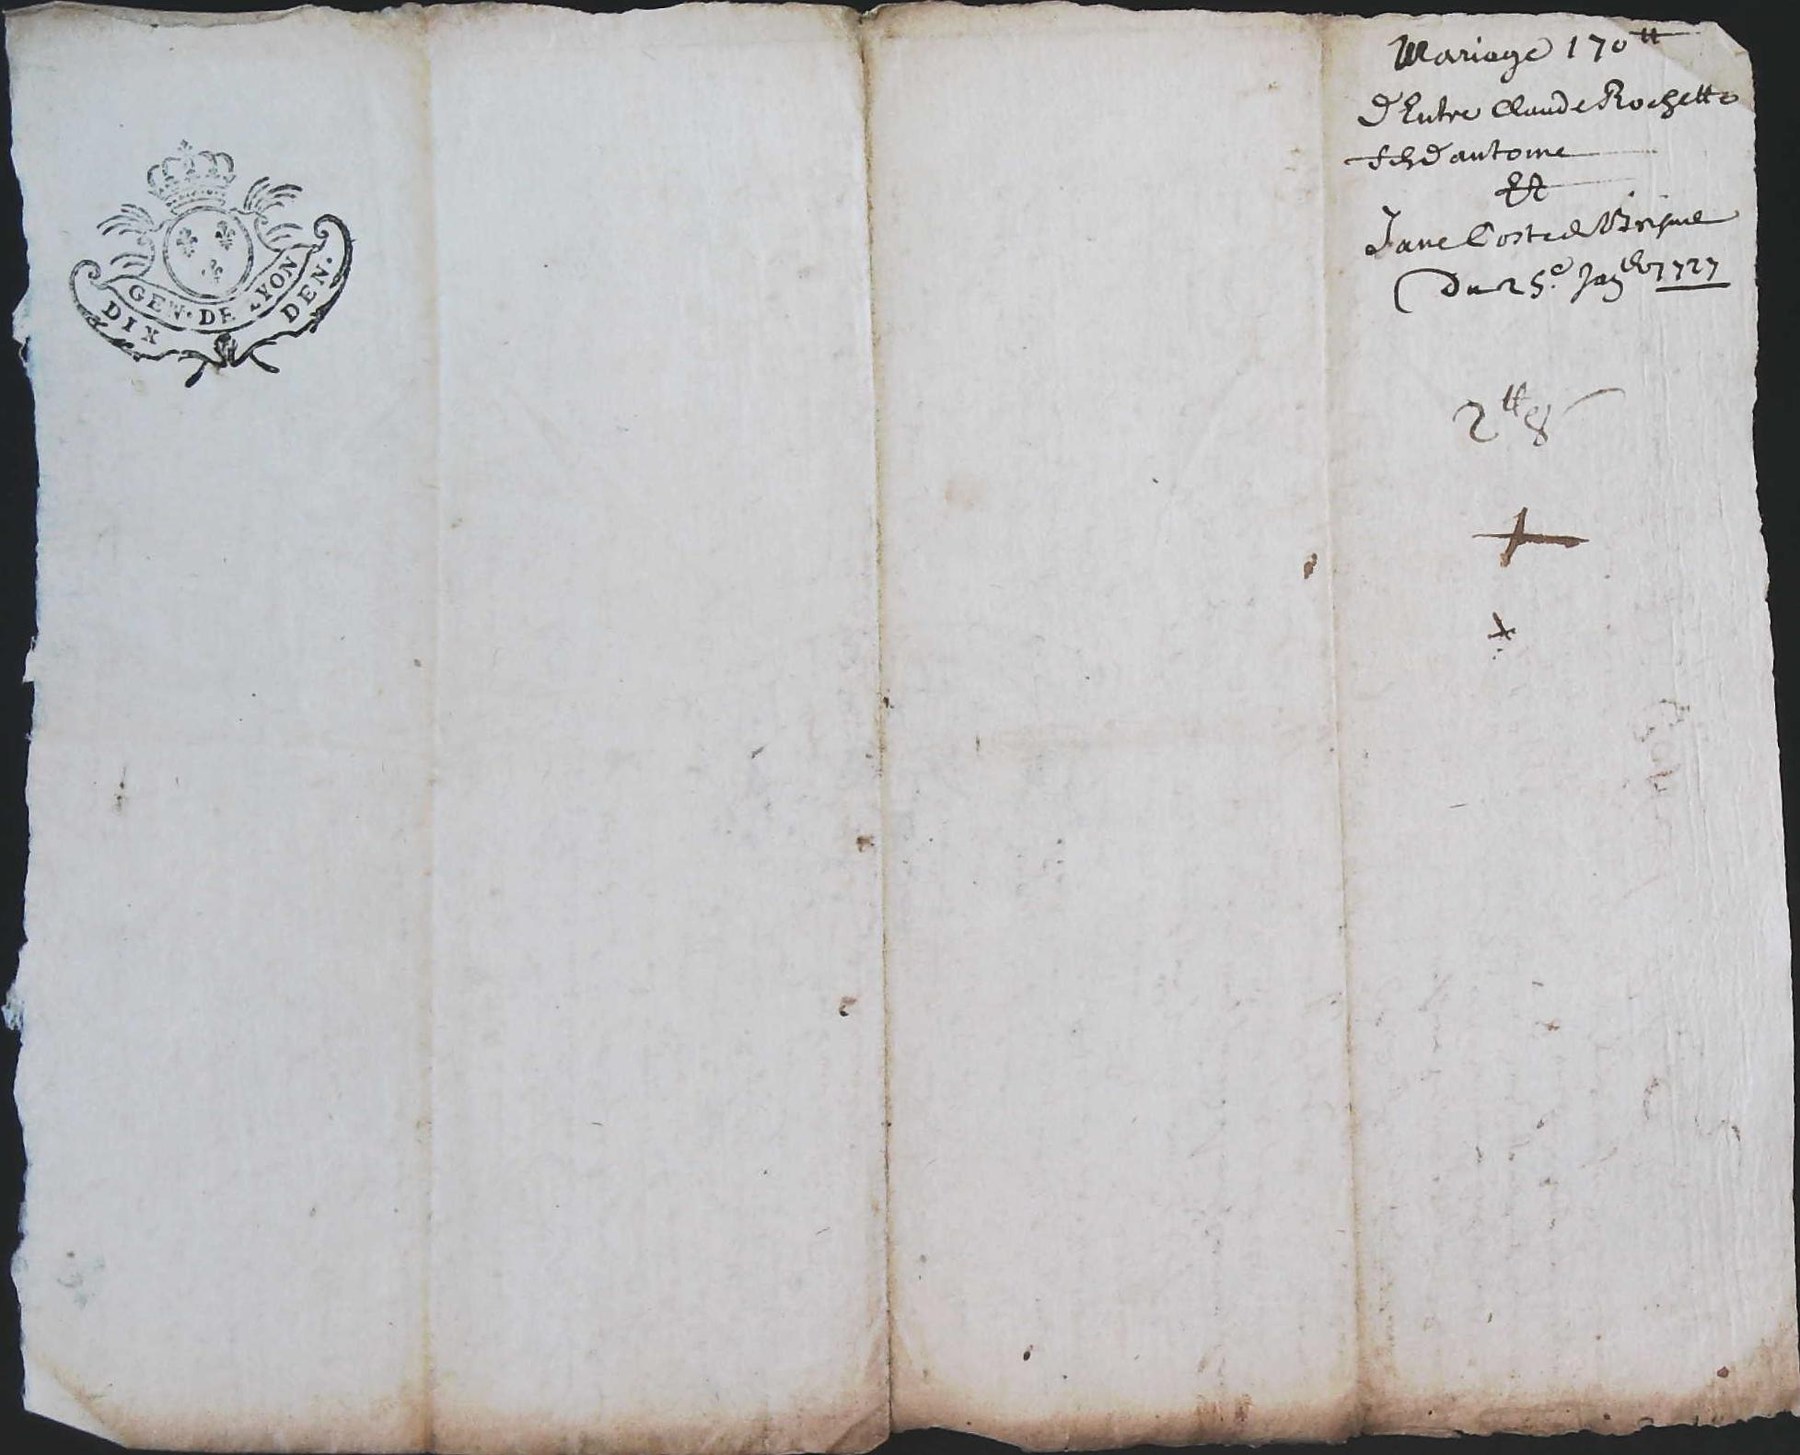 GEN · DE LYON
DIX DEN ·
Mariage 170 tt
d'Entre Claude Rochette
d'antoine
Et
Jane Coste
Du 25e 1727
2 tt 8